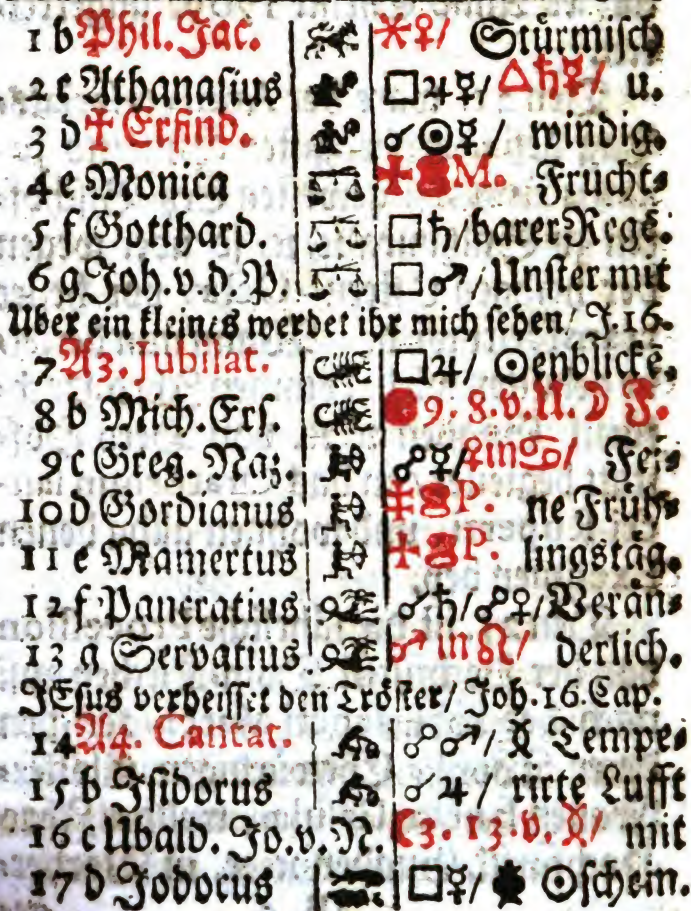 1 b Phil. Jac. ⚹♀/ Stürmisch
2 c Athanasius □♃☿/ △♄☿/ u.
3 d ✝ Erfind. ☌☉☿/ windig.
4 e Monica ✝ M. Frucht⸗
5 f Gotthard. □♄/ barer Rege.
6 g Joh. v. d. P. □♂/ Unster mit
Uber ein kleines werdet ihr mich sehen/ J. 16.
7 A 3. Jubilat. □♃/ ☉enblicke.
8 b Mich. Ers. ● 9. 8. v. U. ☽ F.
9 c Greg. Naz. ☍☿/ ♀in♋/ Fei⸗
10 d Gordianus ‡ P. ne Früh⸗
11 e Mamertus ✝ P. lingstäg.
12 f Pancratius ☌♄/ ☍♀/ Verän⸗
13 g Servatius ♂ in ♌/ derlich.
JEsus verheisset den Tröster/ Joh. 16. Cap.
14 A 4. Cantat. ☍♂/ Tempe⸗
15 b Isidorus ☌♃/ rirte Lufft
16 c Ubald. Jo. v. N. ☾ 3. 13. v. / mit
17 d Jodocus □☿/ ☉schein.